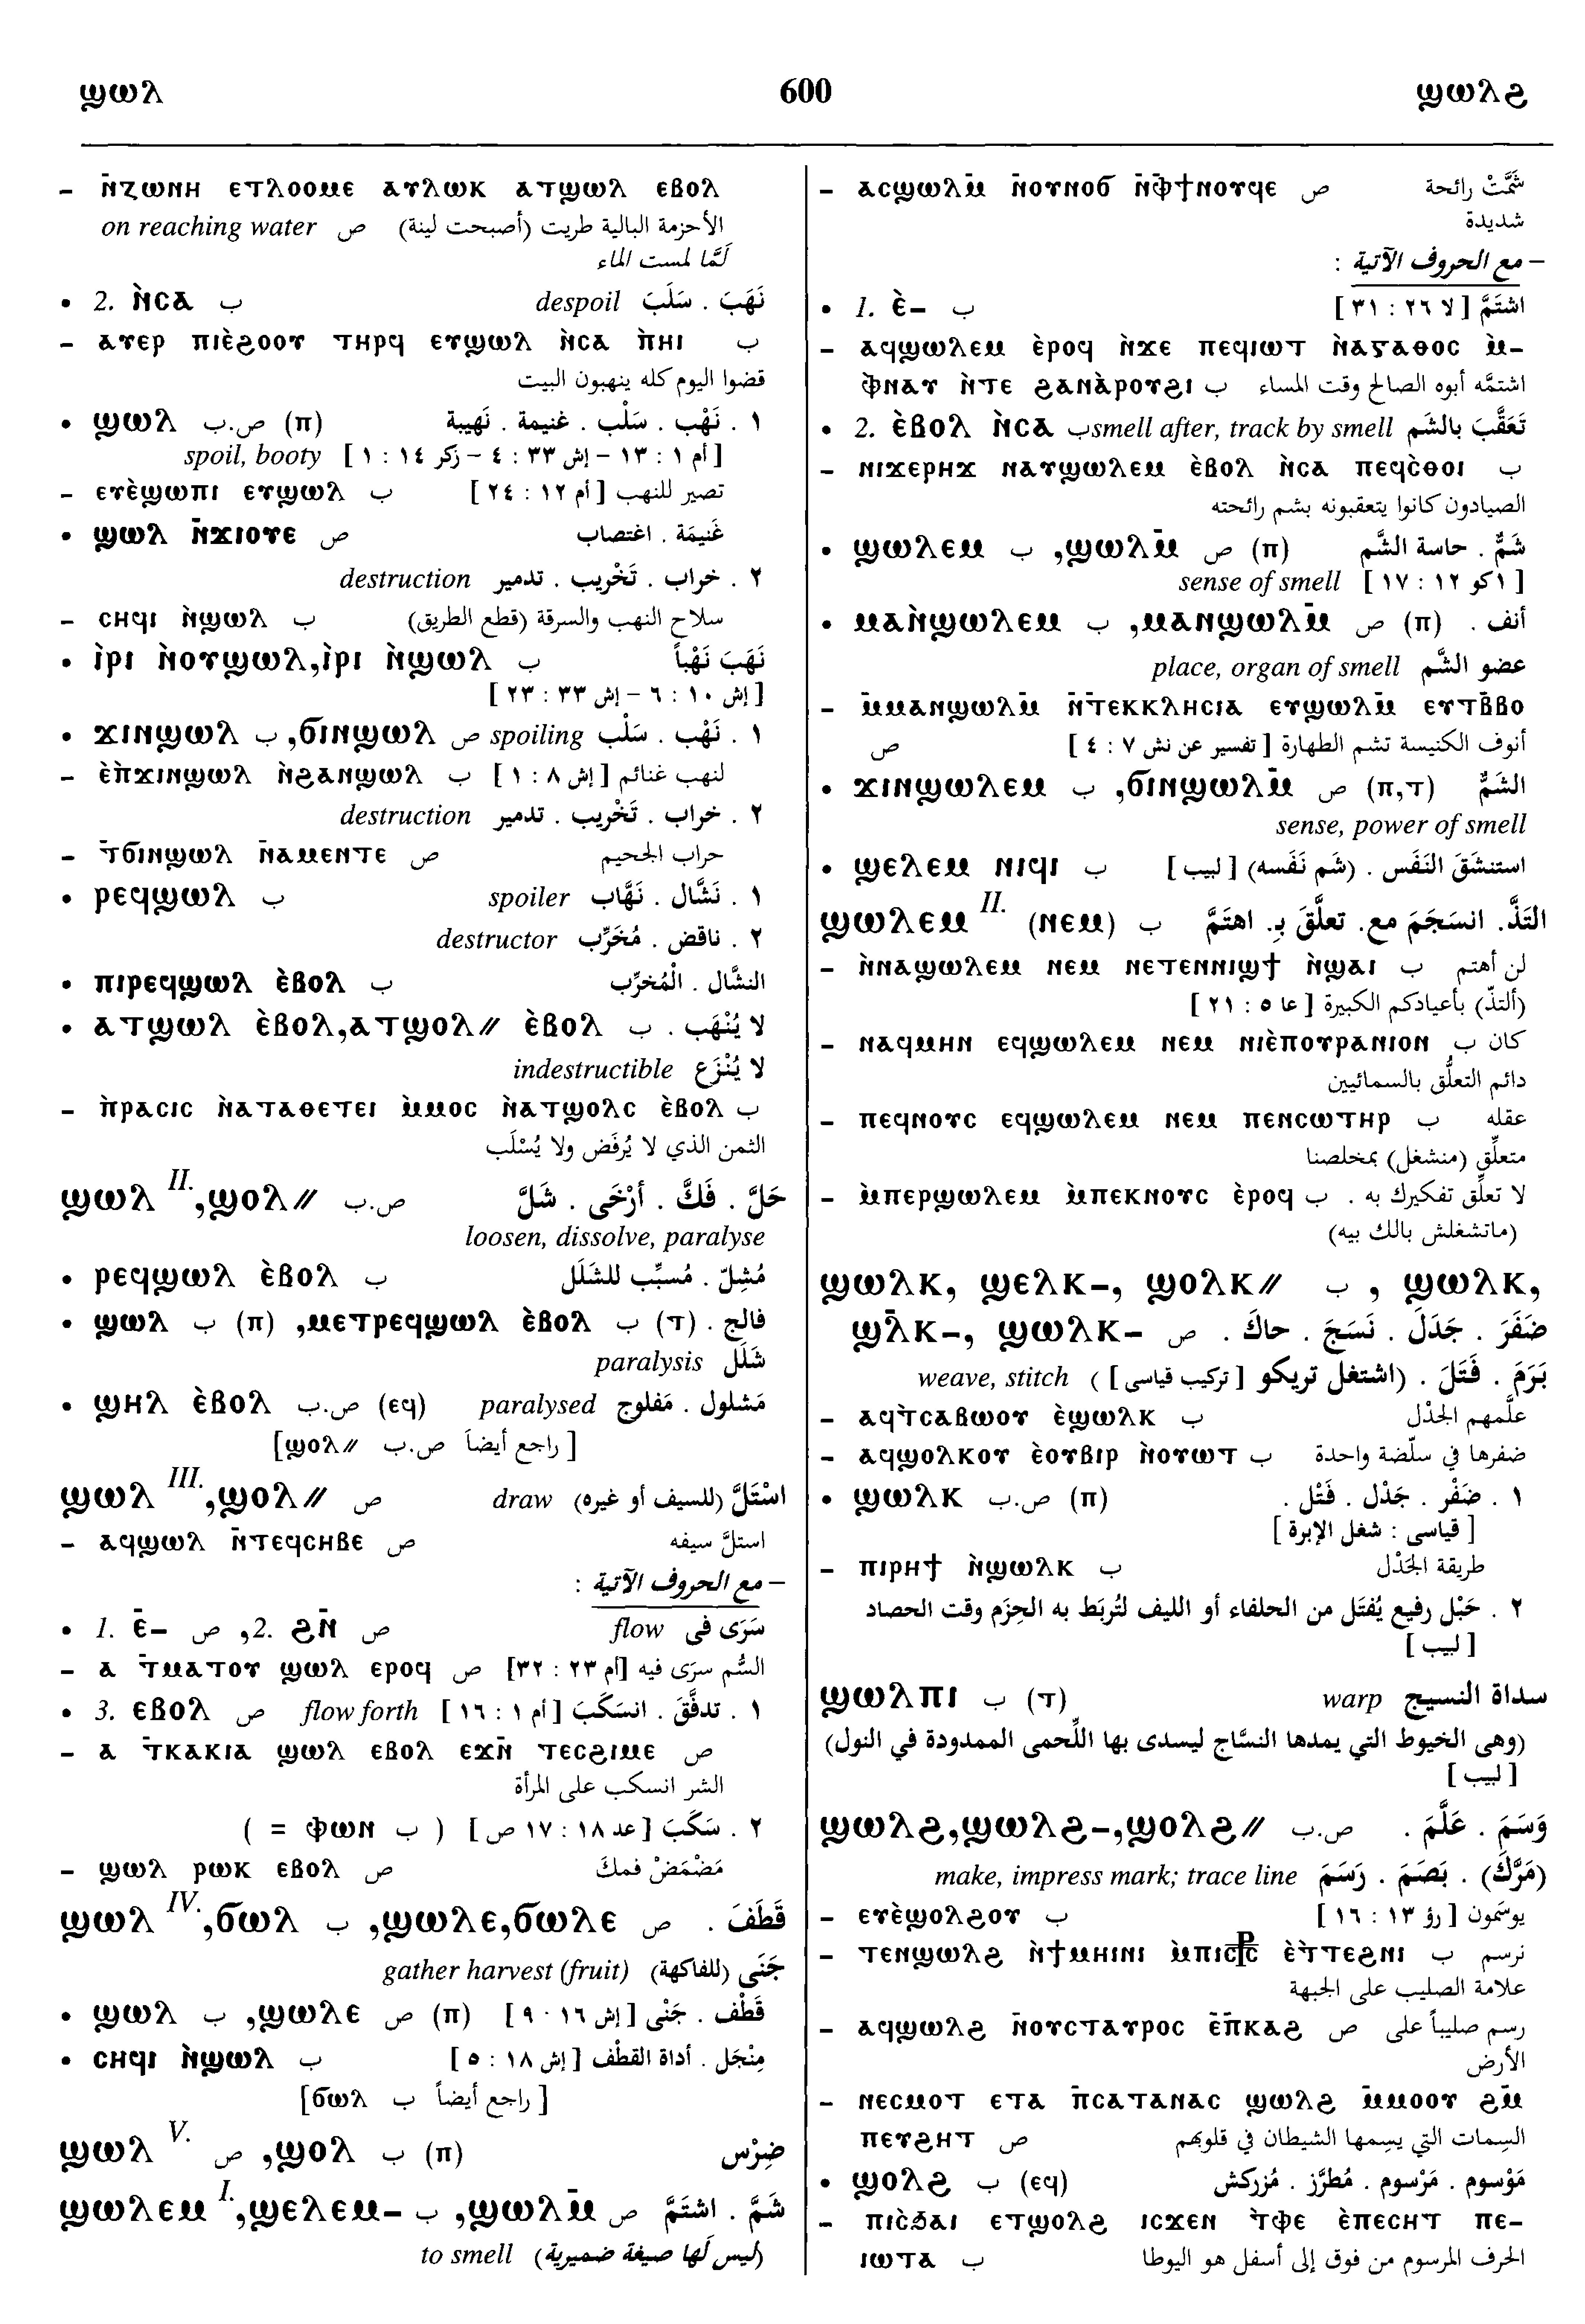 ϣⲱⲗ 600 ϣⲱⲗϩ
– ⲛ̄ⲍⲱⲛⲏ ⲉⲧⲗⲟⲟⲙⲉ ⲁⲩⲗⲱⲕ ⲁⲧϣⲱⲗ ⲉⲃⲟⲗ
on reaching water ص الأحزمة البالية طريت (أصبحت لينة)
لَمَّا لمست الماء
• 2. ⲛ̀ⲥⲁ ب despoil نَهَبَ . سَلَبَ
– ⲁⲩⲉⲣ ⲡⲓⲉ̀ϩⲟⲟⲩ ⲧⲏⲣϥ ⲉⲩϣⲱⲗ ⲛ̀ⲥⲁ ⲡ̀ⲏⲓ ب
قضوا اليوم كله ينهبون البيت
• ϣⲱⲗ ص.ب (ⲡ) ١ . نَهْب . سَلْب . غنيمة . نَهيبة
spoil, booty [أم ١ : ١٣ – إش ٣٣ : ٤ – زكر ١٤ : ١]
– ⲉⲩⲉ̀ϣⲱⲡⲓ ⲉⲩϣⲱⲗ ب تصير للنهب [أم ١٢ : ٢٤]
• ϣⲱⲗ ⲛ̄ϫⲓⲟⲩⲉ ص غَنيمَة . اغتصاب
٢ . خراب . تَخْريب . تدمير destruction
– ⲥⲏϥⲓ ⲛ̀ϣⲱⲗ ب سلاح النهب والسرقة (قطع الطريق)
• ⲓ̀ⲣⲓ ⲛ̀ⲟⲩϣⲱⲗ,ⲓ̀ⲣⲓ ⲛ̀ϣⲱⲗ ب نَهَبَ نَهْباً
[إش ١٠ : ٦ – إش ٣٣ : ٢٣]
• ϫⲓⲛϣⲱⲗ ب ,ϭⲓⲛϣⲱⲗ ص spoiling ١ . نَهْب . سَلْب
– ⲉ̀ⲡϫⲓⲛϣⲱⲗ ⲛ̀ϩⲁⲛϣⲱⲗ ب لنهب غنائم [إش ٨ : ١]
٢ . خراب . تَخْريب . تدمير destruction
– ⲧ̄ϭⲓⲛϣⲱⲗ ⲛ̄ⲁⲙⲉⲛⲧⲉ ص حراب الجحيم
• ⲣⲉϥϣⲱⲗ ب spoiler ١ . نَشَّال . نَهَّاب
٢ . ناقض . مُخَرِّب destructor
• ⲡⲓⲣⲉϥϣⲱⲗ ⲉ̀ⲃⲟⲗ ب النشَّال . الْمُخرِّب
• ⲁⲧϣⲱⲗ ⲉ̀ⲃⲟⲗ,ⲁⲧϣⲟⲗ// ⲉ̀ⲃⲟⲗ ب لا يُنْهَب .
indestructible لا يُنْزَع
– ⲡ̀ⲣⲁⲥⲓⲥ ⲛ̀ⲁⲧⲁⲑⲉⲧⲉⲓ ⲙ̀ⲙⲟⲥ ⲛ̀ⲁⲧϣⲟⲗⲥ ⲉ̀ⲃⲟⲗ ب
الثمن الذي لا يُرفَض ولا يُسْلَب
ϣⲱⲗ II.,ϣⲟⲗ// ص.ب حَلَّ . فَكَّ . أرْخَى . شَلَّ
loosen, dissolve, paralyse
• ⲣⲉϥϣⲱⲗ ⲉ̀ⲃⲟⲗ ب مُشِلّ . مُسبِّب للشَلَل
• ϣⲱⲗ (ⲡ) ب ,ⲙⲉⲧⲣⲉϥϣⲱⲗ ⲉ̀ⲃⲟⲗ ب (ⲧ) فالج .
paralysis شَلَل
• ϣⲏⲗ ⲉ̀ⲃⲟⲗ ص.ب (ⲉϥ) paralysed مَشلول . مَفلوج
[راجع أيضاً ص.ب ϣⲟⲗ//]
ϣⲱⲗ III.,ϣⲟⲗ// ص draw اسْتَلَّ (للسيف أو غيره)
– ⲁϥϣⲱⲗ ⲛ̄ⲧⲉϥⲥⲏⲃⲉ ص استلَّ سيفه
– مع الحروف الآتية :
• 1. ⲉ̄– ص ,2. ϩⲛ̄ ص flow سَرَى في
– ⲁ ⲧ̄ⲙⲁⲧⲟⲩ ϣⲱⲗ ⲉⲣⲟϥ ص السُّم سرَى فيه [أم ٢٣ : ٣٢]
• 3. ⲉⲃⲟⲗ ص flow forth ١ . تدفَّقَ . انسَكَبَ [أم ١ : ١٦]
– ⲁ ⲧ̄ⲕⲁⲕⲓⲁ ϣⲱⲗ ⲉⲃⲟⲗ ⲉϫⲛ̄ ⲧⲉⲥϩⲓⲙⲉ ص
الشر انسكب على المرأة
٢ . سَكَبَ [عد ١٨ : ١٧ ص] ( ب ⲫⲱⲛ = )
– ϣⲱⲗ ⲣⲱⲕ ⲉⲃⲟⲗ ص مَضْمَضْ فمكَ
ϣⲱⲗ IV.,ϭⲱⲗ ب ,ϣⲱⲗⲉ,ϭⲱⲗⲉ ص قَطَفَ .
gather harvest (fruit) جَنَى (للفاكهة)
• ϣⲱⲗ ب ,ϣⲱⲗⲉ ص (ⲡ) قَطْف . جَنْى [إش ١٦ · ٩]
• ⲥⲏϥⲓ ⲛ̀ϣⲱⲗ ب مِنْجَل . أداة القطْف [إش ١٨ : ٥]
[راجع أيضاً ب ϭⲱⲗ]
ϣⲱⲗ V. ص ,ϣⲟⲗ ب (ⲡ) ضِرْس
ϣⲱⲗⲉⲙ I.,ϣⲉⲗⲉⲙ– ب ,ϣⲱⲗⲙ̄ ص شَمَّ . اشتَمَّ
to smell (ليس لَها صيغة ضميرية)
– ⲁⲥϣⲱⲗⲙ̄ ⲛ̄ⲟⲩⲛⲟϭ ⲛ̄ⲫ̄ϯⲛⲟⲩϥⲉ ص شَمَّتْ رائحة
شديدة
– مع الحروف الآتية :
• 1. ⲉ̀– ب اشتَمَّ [لا ٢٦ : ٣١]
– ⲁϥϣⲱⲗⲉⲙ ⲉ̀ⲣⲟϥ ⲛ̀ϫⲉ ⲡⲉϥⲓⲱⲧ ⲛ̀ⲁⲅⲁⲑⲟⲥ ⲙ̀–
ⲫ̀ⲛⲁⲩ ⲛ̀ⲧⲉ ϩⲁⲛⲁ̀ⲣⲟⲩϩⲓ ب اشتمَّه أبوه الصالح وقت المساء
• 2. ⲉ̀ⲃⲟⲗ ⲛ̀ⲥⲁ ب smell after, track by smell تَعَقَّبَ بالشَم
– ⲛⲓϫⲉⲣⲏϫ ⲛⲁⲩϣⲱⲗⲉⲙ ⲉ̀ⲃⲟⲗ ⲛ̀ⲥⲁ ⲡⲉϥⲥ̀ⲑⲟⲓ ب
الصيادون كانوا يتعقبونه بشم رائحته
• ϣⲱⲗⲉⲙ ب ,ϣⲱⲗⲙ̄ ص (ⲡ) شَمٌّ . حاسة الشَّم
sense of smell [١كو ١٢ : ١٧]
• ⲙⲁⲛ̀ϣⲱⲗⲉⲙ ب ,ⲙⲁⲛϣⲱⲗⲙ̄ ص (ⲡ) أنف .
place, organ of smell عضو الشَّم
– ⲙ̄ⲙⲁⲛϣⲱⲗⲙ̄ ⲛ̄ⲧⲉⲕⲕⲗⲏⲥⲓⲁ ⲉⲩϣⲱⲗⲙ̄ ⲉⲩⲧⲃ̄ⲃⲟ
ص أنوف الكنيسة تشم الطهارة [تفسير عن نش ٧ : ٤]
• ϫⲓⲛϣⲱⲗⲉⲙ ب ,ϭⲓⲛϣⲱⲗⲙ̄ ص (ⲡ,ⲧ) الشَمٌّ
sense, power of smell
• ϣⲉⲗⲉⲙ ⲛⲓϥⲓ ب استنشَقَ النَفَس . (شَم نَفَسه) [لبيب]
ϣⲱⲗⲉⲙ II. (ⲛⲉⲙ) ب التَذَّ. انسَجَمَ مع. تعلَّقَ بِـ. اهتَمَّ
– ⲛ̀ⲛⲁϣⲱⲗⲉⲙ ⲛⲉⲙ ⲛⲉⲧⲉⲛⲛⲓϣϯ ⲛ̀ϣⲁⲓ ب لن أهتم
(ألتذّ) بأعيادكم الكبيرة [عا ٥ : ٢١]
– ⲛⲁϥⲙⲏⲛ ⲉϥϣⲱⲗⲉⲙ ⲛⲉⲙ ⲛⲓⲉ̀ⲡⲟⲩⲣⲁⲛⲓⲟⲛ ب كان
دائم التعلُّق بالسمائيين
– ⲡⲉϥⲛⲟⲩⲥ ⲉϥϣⲱⲗⲉⲙ ⲛⲉⲙ ⲡⲉⲛⲥⲱⲧⲏⲣ ب عقله
متعلِّق (منشغل) بمخلصنا
– ⲙ̀ⲡⲉⲣϣⲱⲗⲉⲙ ⲙ̀ⲡⲉⲕⲛⲟⲩⲥ ⲉ̀ⲣⲟϥ ب لا تعلِّق تفكيرك به .
(ماتشغلش بالك بيه)
ϣⲱⲗⲕ, ϣⲉⲗⲕ–, ϣⲟⲗⲕ// ب , ϣⲱⲗⲕ,
ϣⲗ̄ⲕ–, ϣⲱⲗⲕ– ص ضَفَرَ . جَدَلَ . نَسَجَ . حاكَ .
weave, stitch بَرَمَ . فَتَلَ . (اشتغل تريكو [تركيب قياسى] )
– ⲁϥⲧ̀ⲥⲁⲃⲱⲟⲩ ⲉ̀ϣⲱⲗⲕ ب علَّمهم الجَدْل
– ⲁϥϣⲟⲗⲕⲟⲩ ⲉ̀ⲟⲩⲃⲓⲣ ⲛ̀ⲟⲩⲱⲧ ب ضفرها في سلّضة واحدة
• ϣⲱⲗⲕ ص.ب (ⲡ) ١ . ضَفْر . جَدْل . فَتْل .
[قياسى : شغل الإبرة]
– ⲡⲓⲣⲏϯ ⲛ̀ϣⲱⲗⲕ ب طريقة الجَدْل
٢ . حَبْل رفيع يُفتَل من الحلفاء أو الليف لتُربَط به الحِزَم وقت الحصاد
[لبيب]
ϣⲱⲗⲡⲓ ب (ⲧ) warp سداة النسيج
(وهى الخيوط التي يمدها النسَّاج ليسدى بها اللُّحمى الممدودة في النول)
[لبيب]
ϣⲱⲗϩ,ϣⲱⲗϩ–,ϣⲟⲗϩ// ص.ب وَسَمَ . عَلَّمَ .
make, impress mark; trace line (مَرَّكَ) . بَصَمَ . رَسَمَ
– ⲉⲩⲉ̀ϣⲟⲗϩⲟⲩ ب يوسَمون [رؤ ١٣ : ١٦]
– ⲧⲉⲛϣⲱⲗϩ ⲛ̀ϯⲙⲏⲓⲛⲓ ⲙ̀ⲡⲓⲥ⳨ⲥ ⲉ̀ⲧ̀ⲧⲉϩⲛⲓ ب نرسم
علامة الصليب على الجبهة
– ⲁϥϣⲱⲗϩ ⲛ̄ⲟⲩⲥⲧⲁⲩⲣⲟⲥ ⲉ̄ⲡ̄ⲕⲁϩ ص رسم صليباً على
الأرض
– ⲛⲉⲥⲙⲟⲧ ⲉⲧⲁ ⲡ̄ⲥⲁⲧⲁⲛⲁⲥ ϣⲱⲗϩ ⲙ̄ⲙⲟⲟⲩ ϩⲙ̄
ⲡⲉⲩϩⲏⲧ ص السِمات التي يسِمها الشيطان في قلوبهم
• ϣⲟⲗϩ ب (ⲉϥ) مَوْسوم . مَرْسوم . مُطرَّز . مُزركش
– ⲡⲓⲥ̀ϧⲁⲓ ⲉⲧϣⲟⲗϩ ⲓⲥϫⲉⲛ ⲧ̀ⲫⲉ ⲉ̀ⲡⲉⲥⲏⲧ ⲡⲉ–
ⲓⲱⲧⲁ ب الحرف المرسوم من فوق إلى أسفل هو اليوطا